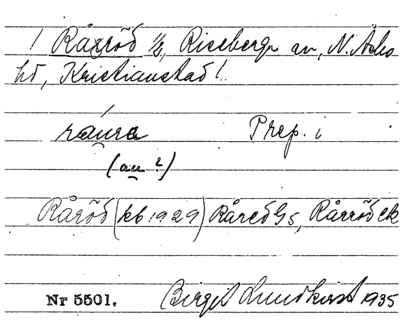 ! Råröd ½, Riseberga sn, N. Åsbo
hd, Kristianstad l.
ráura Prep. i
(au ?)
Råröd (kb 1929) Råred Gs, Rårröd ek
Nr 5501. Birgit Lundkvist 1935